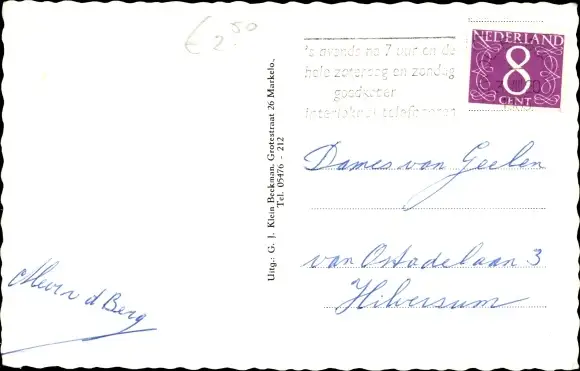 € 2.50
's avonds na 7 uur en de
hele zaterdag en zondag
goedkoper
interlokaal telefoneren
NEDERLAND
8
CENT
Uitg.: G. J. Klein Beekman, Grotestraat 26 Markelo,
Tel. 05476 - 212
Dames van Geelen
van Ostadelaan 3
Hilversum
v d Berg